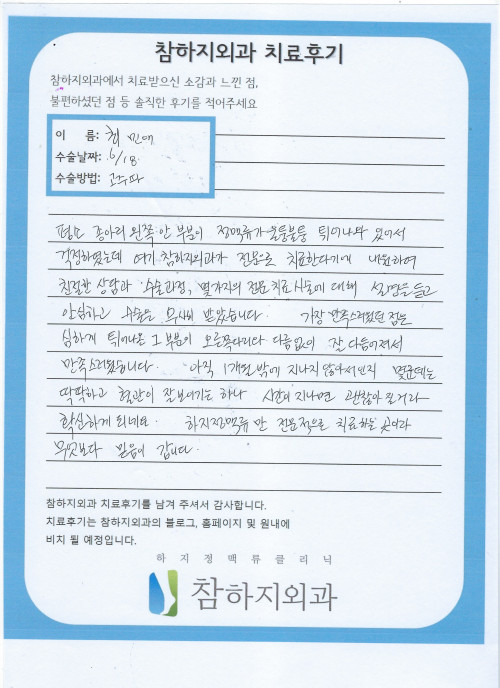 참하지외과 치료후기
참하지외과에서 치료받으신 소감과 느낀 점,
불편하셨던 점 등 솔직한 후기를 적어주세요
이 름: 최 민애
수술날짜: 6/18
수술방법: 고주파
평소 종아리 왼쪽 안 부분이 정맥류가 울퉁불퉁 튀어나와 있어서
걱정하였는데 여기 참하지외과가 전문으로 치료한다기에 내원하여
친절한 상담과 수술과정, 몇가지의 전문 치료 사례에 대해 설명을 듣고
안심하고 수술을 무사히 받았습니다. 가장 만족스러웠던 점은
심하게 튀어나온 그 부분이 오른쪽다리와 다름없이 잘 다듬어져서
만족스러웠습니다. 아직 1개월 밖에 지나지 않아서인지 몇군데는
딱딱하고 혈관이 잘보이기는 하나 시간이 지나면 괜찮아 질거라
확신하게 되네요. 하지정맥류 만 전문적으로 치료하는 곳이라
무엇보다 믿음이 갑니다.
참하지외과 치료후기를 남겨 주셔서 감사합니다.
치료후기는 참하지외과의 블로그, 홈페이지 및 원내에
비치 될 예정입니다.
하지정맥류클리닉
참하지외과